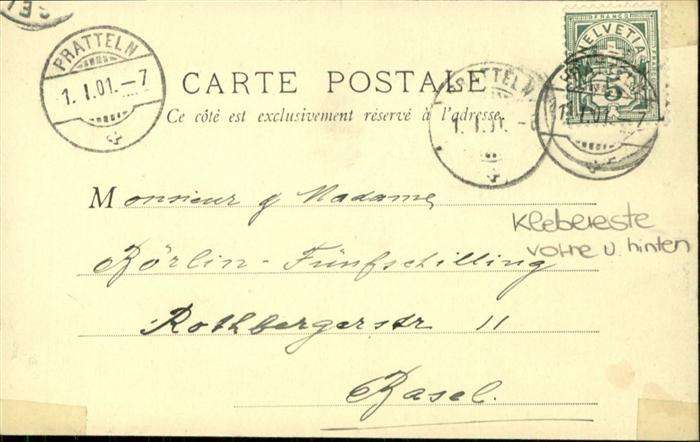 PRATTELN
1. I. 01. –7
FRANCO
HELVETIA
5
CARTE POSTALE
PRATTELN
1. I. 01. –
Ce côté est exclusivement réservé à l'adresse.
Monsieur & Madame
Börlin - Fünfschilling
Rothbergerstr 11
Basel.
Klebereste
vorne u. hinten